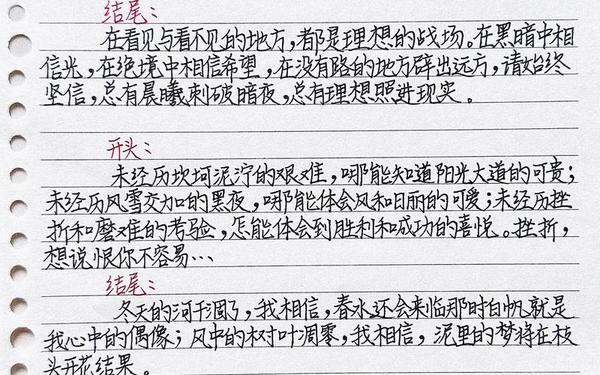 结尾：
在看见与看不见的地方，都是理想的战场。在黑暗中相
信光，在绝境中相信希望，在没有路的地方辟出远方，请始终
坚信，总有晨曦刺破暗夜，总有理想照进现实。
开头：
未经历坎坷泥泞的艰难，哪能知道阳光大道的可贵；
未经历风雪交加的黑夜，哪能体会风和日丽的可爱；未经历挫
折和磨难的考验，怎能体会到胜利和成功的喜悦。挫折，
想说恨你不容易…
结尾：
冬天的河干涸了，我相信，春水还会来临那时白帆就是
我心中的偶像；风中的树叶凋零，我相信，泥里的梦将在枝
头开花结果。